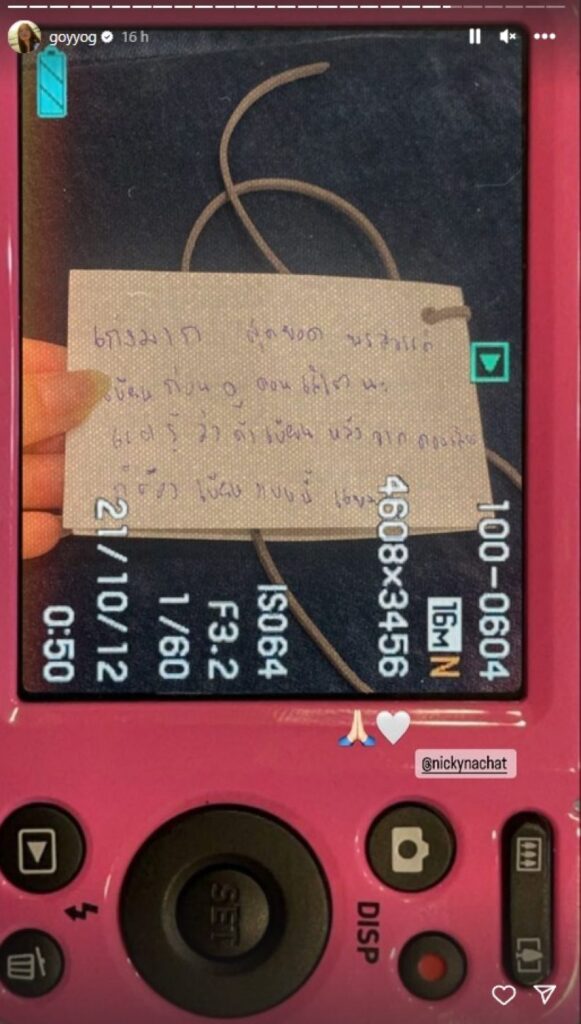 goyyog 16 h
เก่งมาก สุดยอด พรสวรรค์
เขียน ก่อน ดู คอนเสิร์ต นะ
แต่ รู้ ว่า ถ้า เขียน หลัง จาก คอนเสิร์ต
ก็ ต้อง เขียน แบบนี้
100-0604
16M N
4608×3456
ISO64
F3.2
1/60
21/10/12
0:50
@nickynachat
SET
DISP